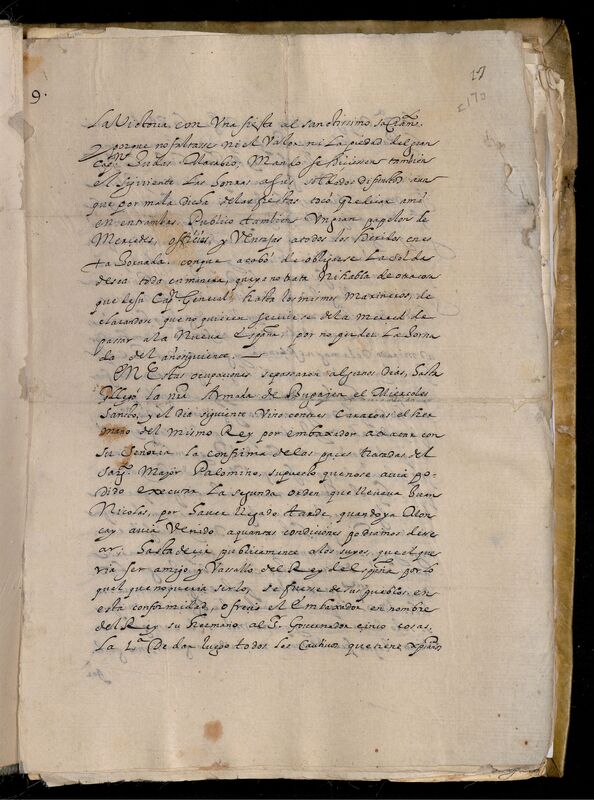 9.
17
La Victoria con Una fiesta al sanctissimo sacram.to
Y porque no faltasse ni el Valor ni La piedad del gran
Cap.n Judas Macabeo, Mando se hiciessen tambien
el siguiente Las honras a sus soldados difuntos aun
que por mala dicha de las fiestas tocó predicar a mi
en entrambas. Publicó tambien Un gran papelon de
Mercedes, officios, y Ventajas a todos los heridos en es
ta Jornada. conque acabó de obligarse La solda
desca toda en manera, que ya no trata ni habla de otra cosa
que de su Cap.n General, hasta los mismos marineros, de
clarandose que no quieren servirse de la merced de
passar a la Nueva España, por no perder La Jorna
da del año siguiente.
En Estas ocupaciones se passaron algunos dias, hasta
q llegó la nra Armada de Buhayen el Miercoles
Sancto, y el dia siguiente Vino con tres Caracoas el her
mano del mismo Rey por embaxador a tratar con
su Señoria la confirma de las paces tratadas del
Sarg.to Mayor Palomino, supuesto que no se avia po
dido executar La segunda orden que llevava Juan
Nicolas, por haver llegado tarde, quando ya Mon
cay avia Venido a quantas condiciones podiamos dese
ar; hasta decir publicamente a los suyos, que el que
ria ser amigo y Vassallo del Rey de españa por lo
qual que no queria serlo, se fuesse de sus pueblos. en
esta conformidad, ofreció el Embaxador en nombre
del Rey su hermano al S.r Governador cinco cosas.
La 1.a De dar luego todos los Cautivos que tiene xpianos